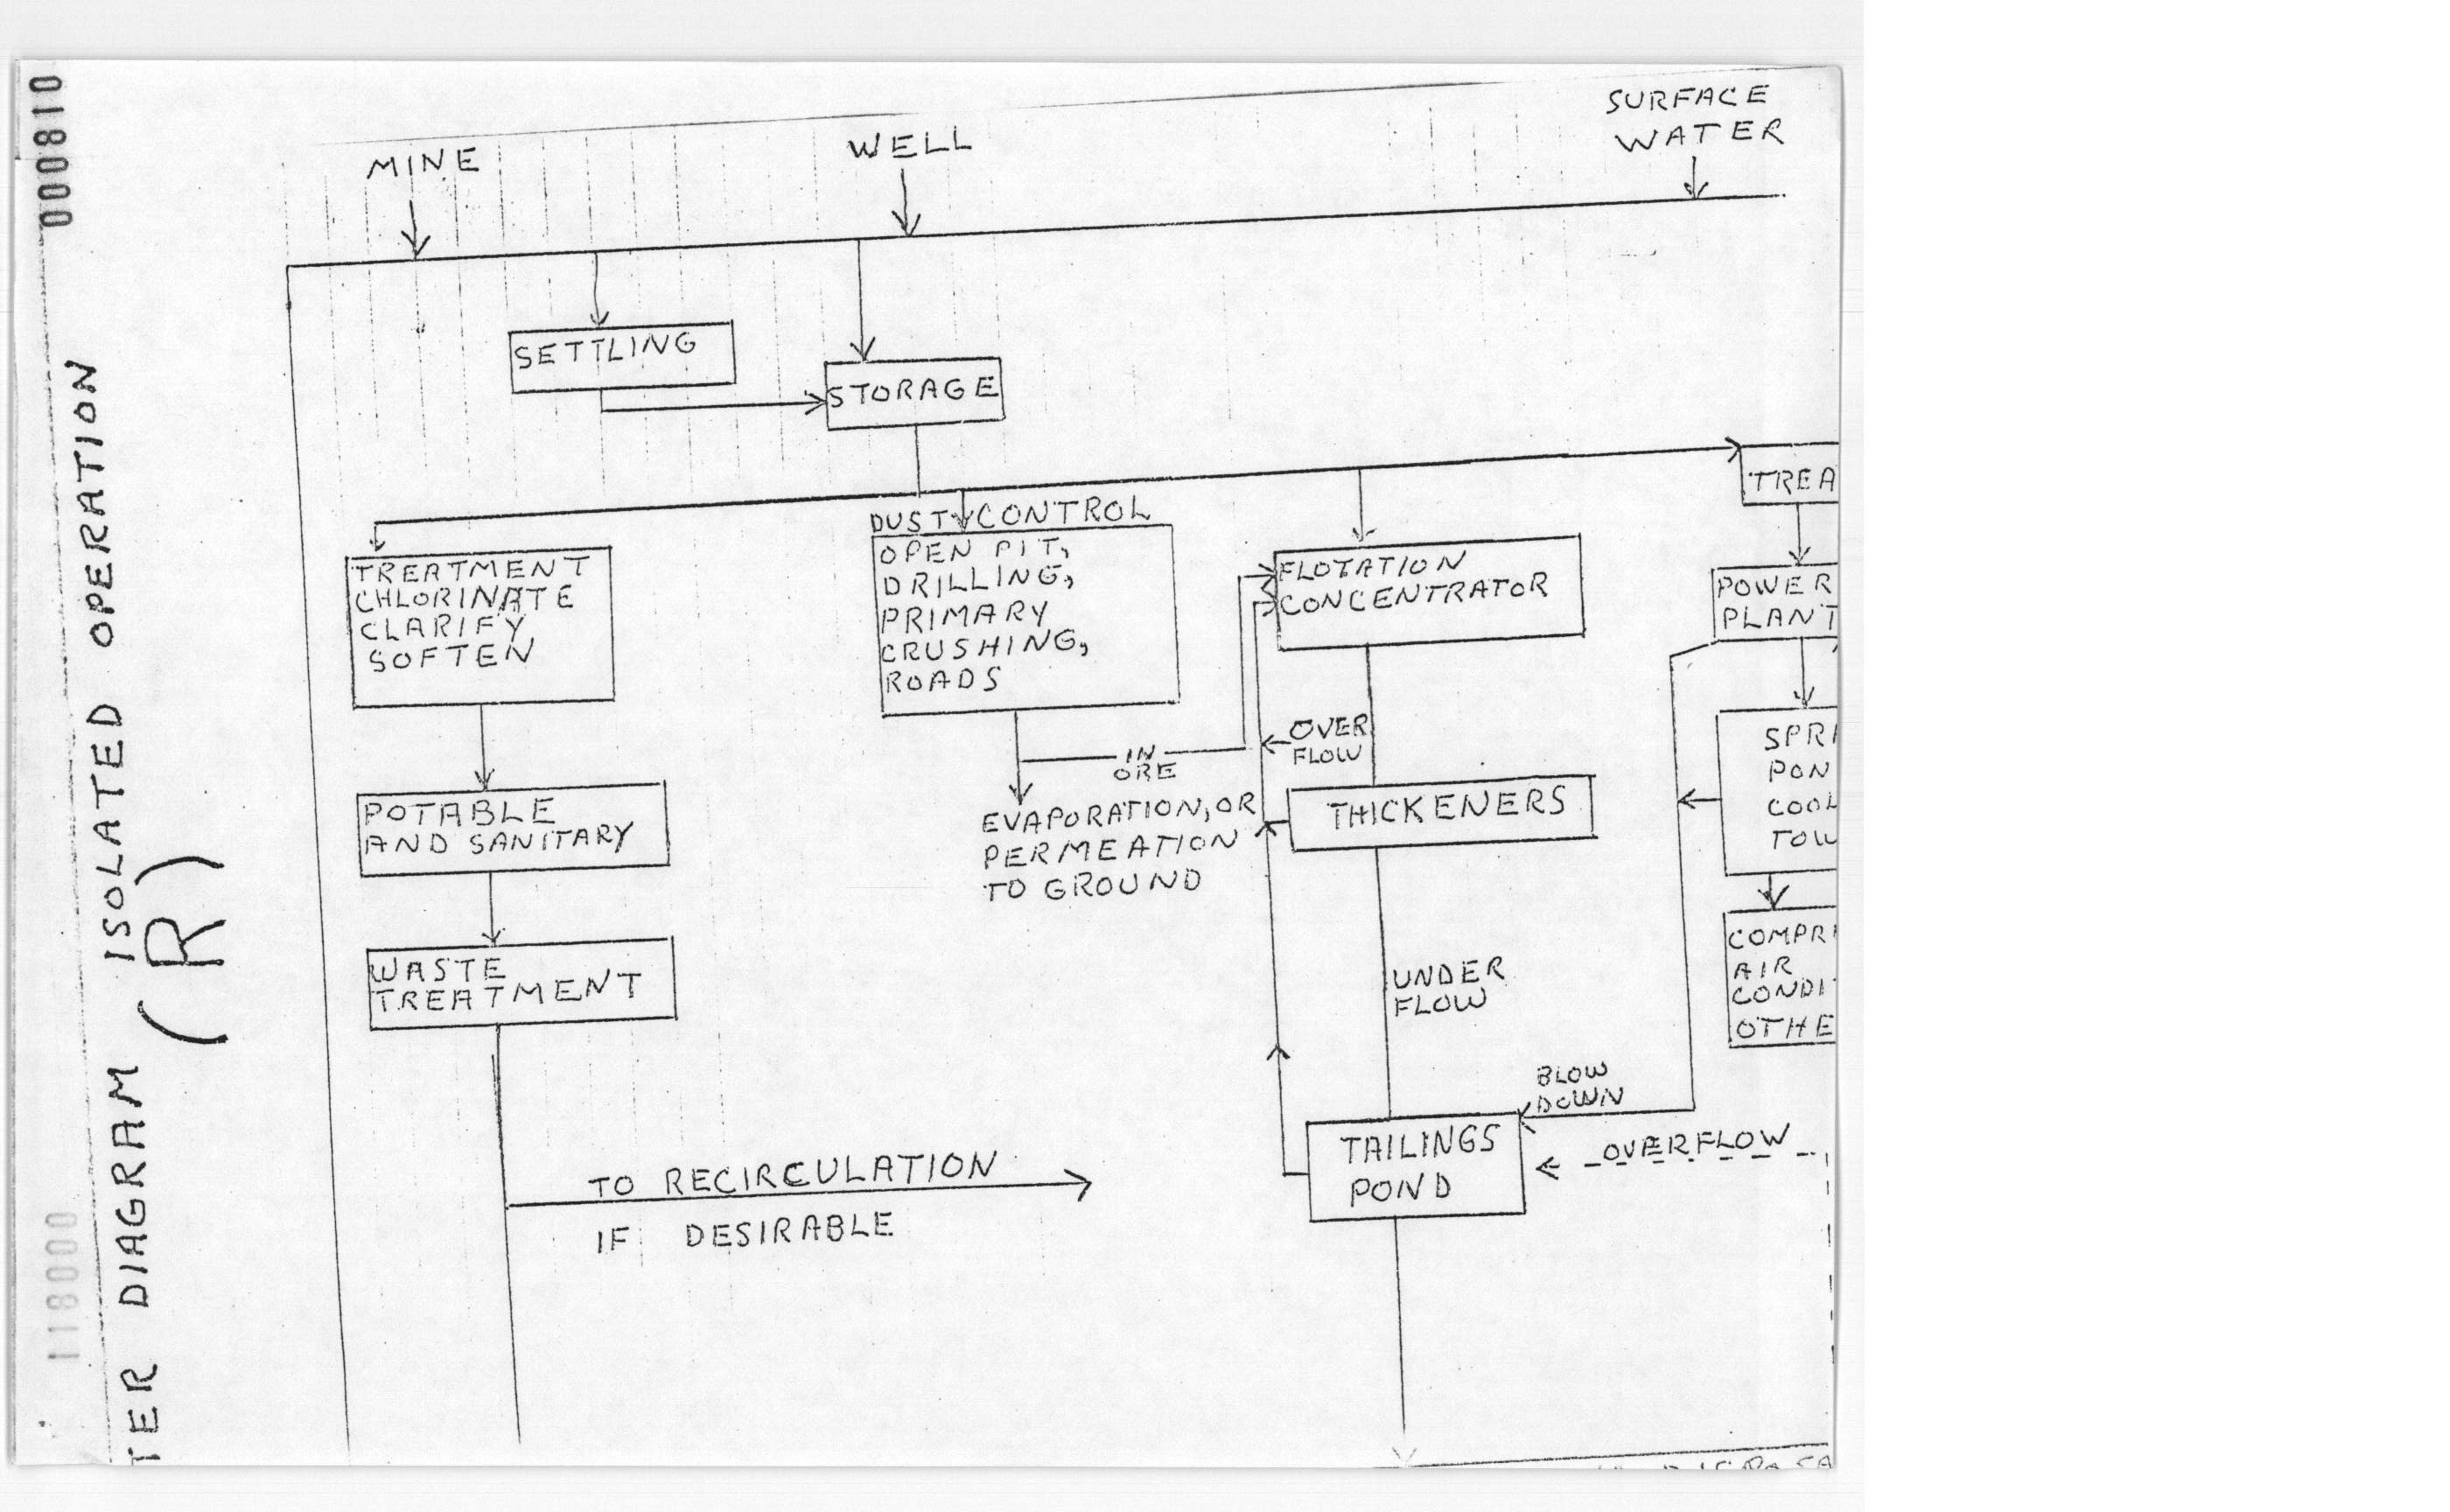 000810
000811
TER DIAGRAM ISOLATED OPERATION
(R)
MINE
WELL
SURFACE
WATER
SETTLING
STORAGE
TREA
TREATMENT
CHLORINATE
CLARIFY
SOFTEN
DUST CONTROL
OPEN PIT,
DRILLING,
PRIMARY
CRUSHING,
ROADS
FLOTATION
CONCENTRATOR
POWER
PLANT
OVER
FLOW
IN
ORE
SPRA
PON
COOL
TOW
POTABLE
AND SANITARY
EVAPORATION, OR
PERMEATION
TO GROUND
THICKENERS
WASTE
TREATMENT
UNDER
FLOW
COMPR
AIR
CONDI
OTHE
BLOW
DOWN
TAILINGS
POND
OVERFLOW
TO RECIRCULATION
IF DESIRABLE